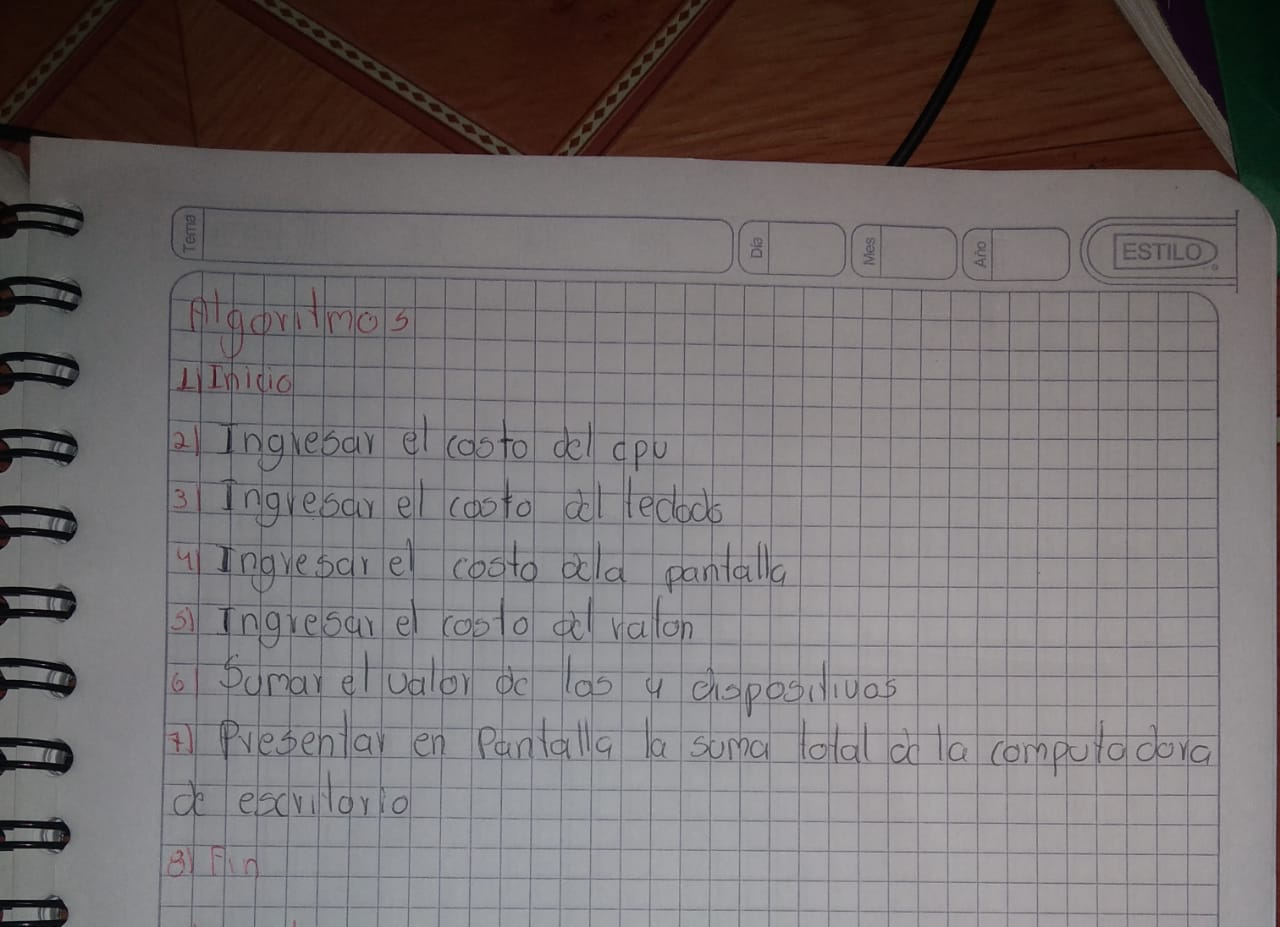 Tema
Día
Mes
Año
ESTILO
Algoritmos
1) Inicio
2) Ingresar el costo del cpu
3) Ingresar el costo del teclado
4) Ingresar el costo dela pantalla
5) Ingresar el costo del raton
6) Sumar el valor de los 4 dispositivos
7) Presentar en Pantalla la suma total de la computadora
de escritorio
8) Fin